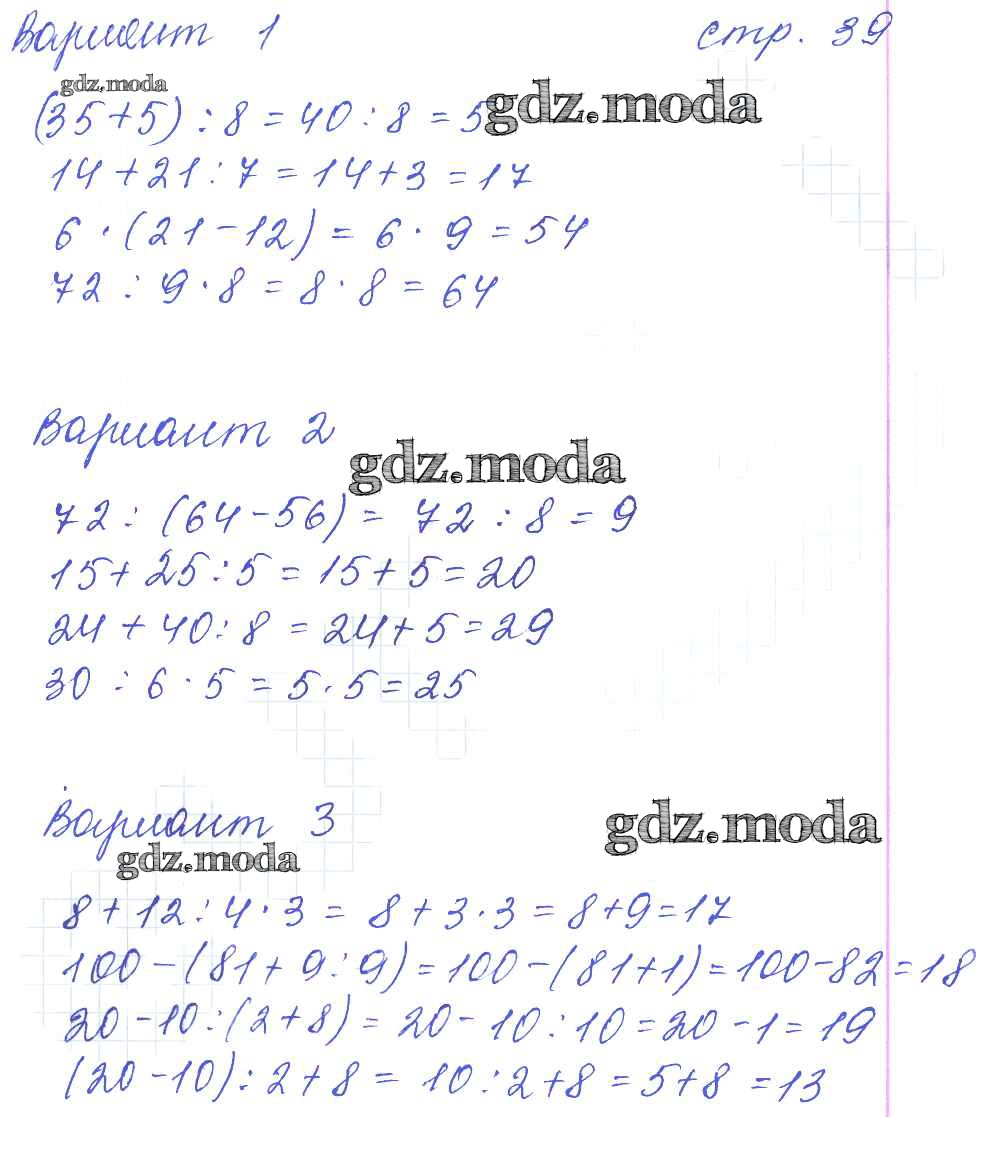 Вариант 1 стр. 39
gdz.moda
(35+5) : 8 = 40 : 8 = 5
gdz.moda
14 + 21 : 7 = 14 + 3 = 17
6 · (21 - 12) = 6 · 9 = 54
72 : 9 · 8 = 8 · 8 = 64
Вариант 2
gdz.moda
72 : (64 - 56) = 72 : 8 = 9
15 + 25 : 5 = 15 + 5 = 20
24 + 40 : 8 = 24 + 5 = 29
30 : 6 · 5 = 5 · 5 = 25
Вариант 3
gdz.moda
gdz.moda
8 + 12 : 4 · 3 = 8 + 3 · 3 = 8 + 9 = 17
100 - (81 + 9 : 9) = 100 - (81 + 1) = 100 - 82 = 18
20 - 10 : (2 + 8) = 20 - 10 : 10 = 20 - 1 = 19
(20 - 10) : 2 + 8 = 10 : 2 + 8 = 5 + 8 = 13